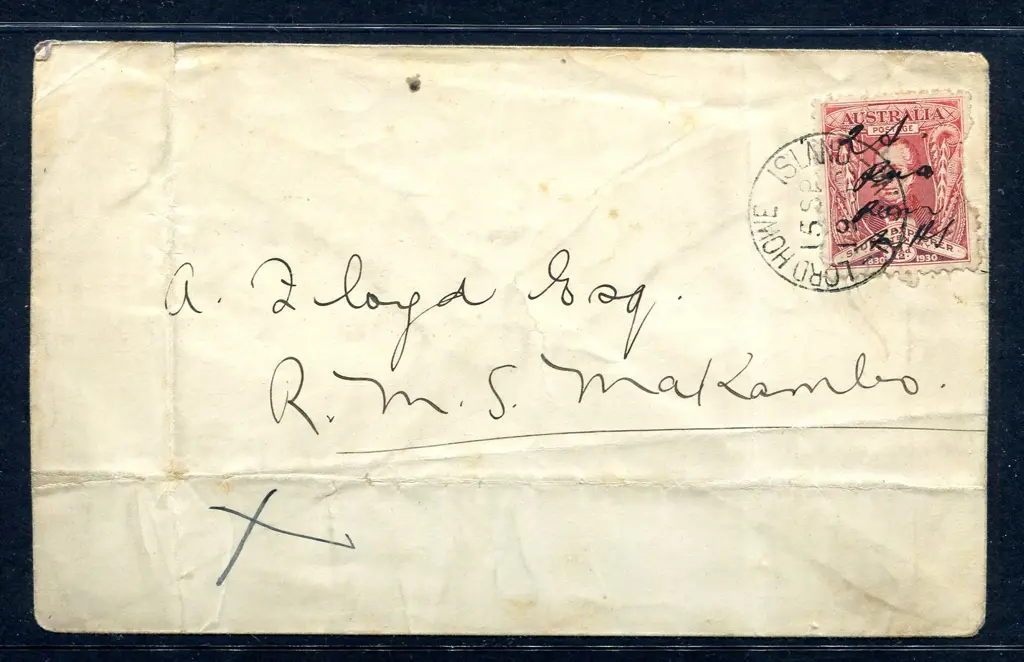 AUSTRALIA
POSTAGE
1830 1930
LORD HOWE ISLAND
15 SP
A. Lloyd Esq.
R. M. S. Makambo.
X